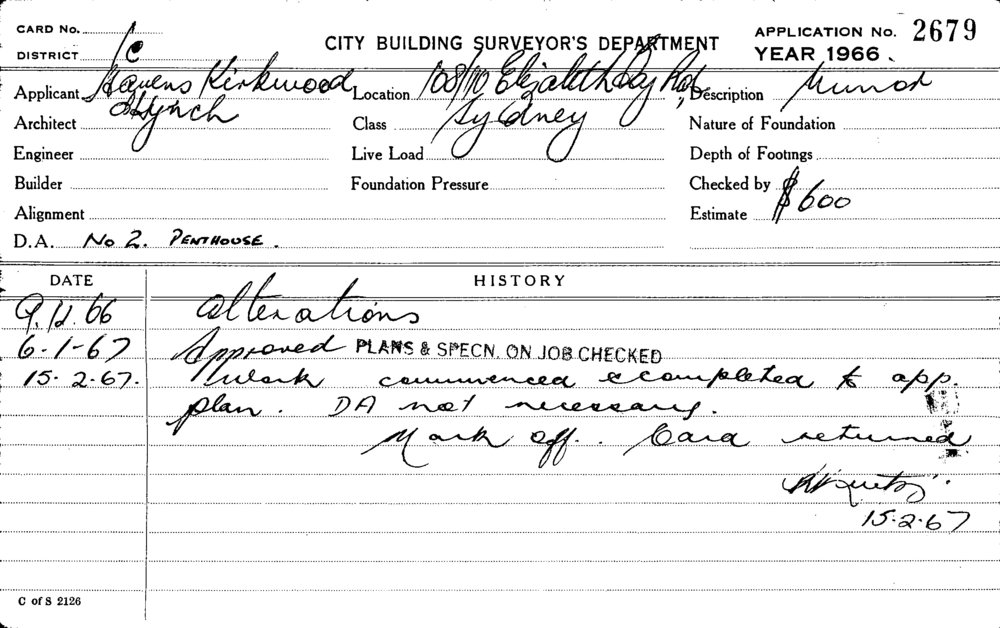 CARD No.
DISTRICT 1c
CITY BUILDING SURVEYOR'S DEPARTMENT
APPLICATION No. 2679
YEAR 1966.
Applicant Kirkwood
Location 108/110 Elizabeth
Description Minor
Architect & Lynch
Class Sydney
Nature of Foundation
Engineer
Live Load
Depth of Footings
Builder
Foundation Pressure
Checked by
Alignment
Estimate $600
D.A. No 2. PENTHOUSE.
DATE HISTORY
9.11.66 Alterations
6-1-67 Approved PLANS & SPECN. ON JOB CHECKED
15.2.67. Work commenced & completed to app.
plan. DA not necessary.
Mark off. Card returned
15.2.67
C of S 2126